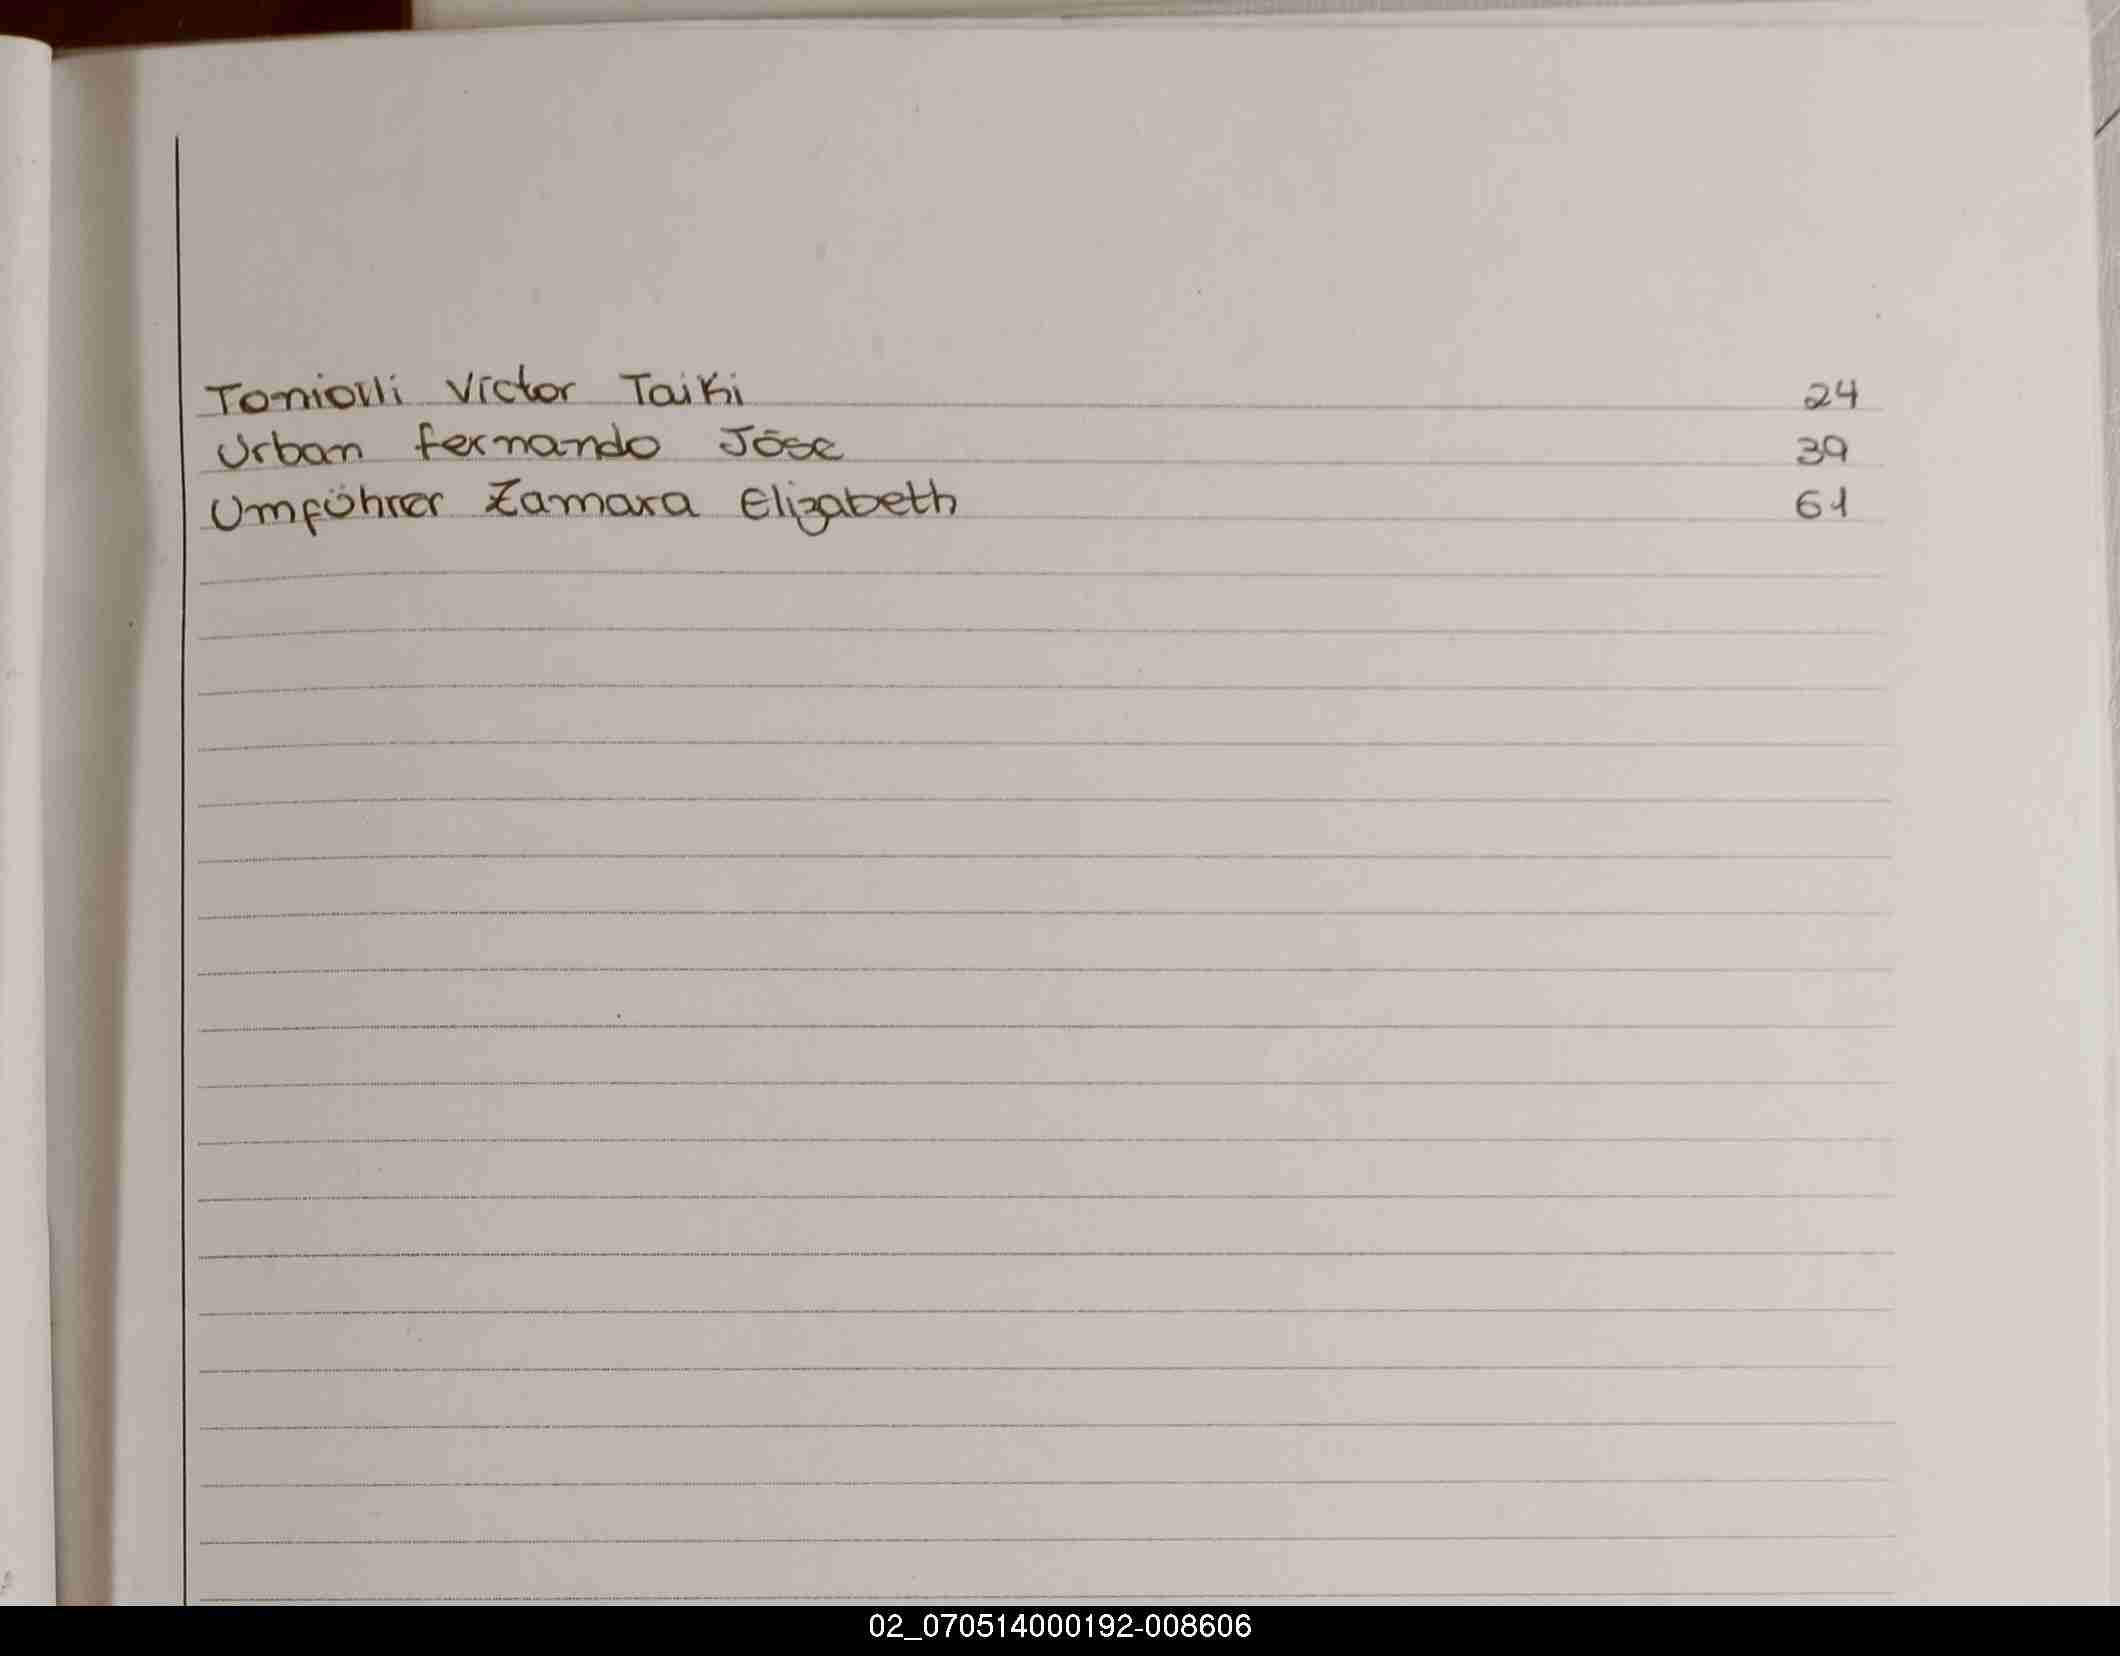 Toniolli Victor Taiki 24
Urban Fernando Jóse 39
Umführer Zamara Elizabeth 61
02_070514000192-008606